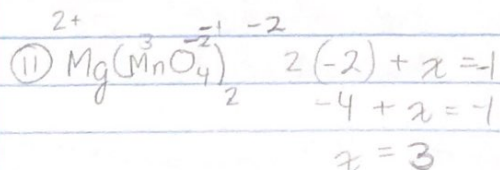 2+ 3 -2 -1 -2
⑪ Mg(MnO4)2 2(-2) + x = -1
-4 + x = -1
x = 3